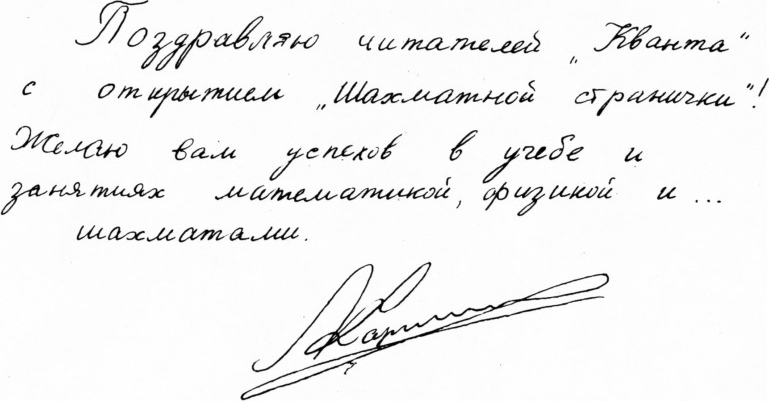 Поздравляю читателей „Кванта“
с открытием „Шахматной странички“!
Желаю вам успехов в учебе и
занятиях математикой, физикой и ...
шахматами.